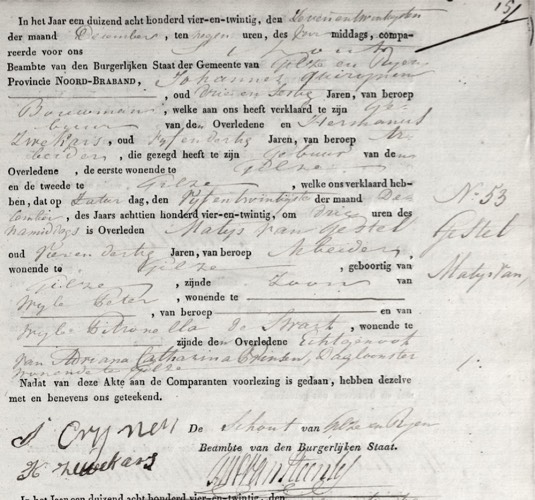 151
In het Jaar een duizend acht honderd vier-en-twintig, den Zevenentwintigsten
der maand December, ten negen uren, des voor middags, compa-
reerde voor ons Schout
Beambte van den Burgerlijken Staat der Gemeente van Gilze en Rijen
Provincie NOORD-BRABAND, Johannes Quirynen
, oud Drie en Jaren, van beroep
Bouwman, welke aan ons heeft verklaard te zijn Ge-
buur van den Overledene en Hermanus
Zwekars, oud Vyf en dertig Jaren, van beroep Ar-
beider, die gezegd heeft te zijn Gebuur van den
Overledene, de eerste wonende te Gilze
en de tweede te Gilze, welke ons verklaard heb-
ben, dat op Zatur dag, den Vyfentwintigsten der maand De-
cember, des Jaars achttien honderd vier-en-twintig, om drie uren des
namiddags is Overleden Matys van Gestel
oud Vier en dertig Jaren, van beroep Arbeider
wonende te Gilze, geboortig van
Gilze, zijnde Zoon van
Wyle Peter, wonende te
, van beroep en van
Wyle Pitronella de Swart, wonende te
zijnde den Overledene Echtgenoot
van Adriana Catharina Daglonster
wonende te Gilze
Nadat van deze Akte aan de Comparanten voorlezing is gedaan, hebben dezelve
met en benevens ons geteekend.
N° 53
Gestel
Matys van,
1.
J Crynen
De Schout van Gilze en Ryen
Beambte van den Burgerlijken Staat.
H Zwekars
In het Jaar een duizend acht honderd vier-en-twintig, den